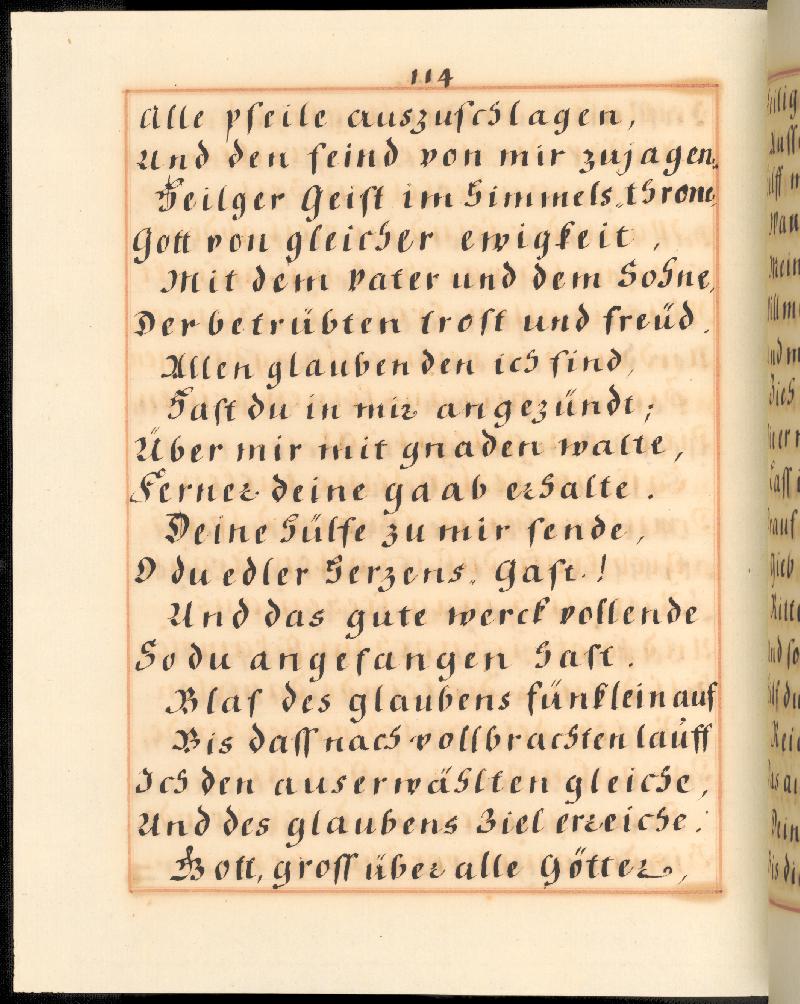 114
Alle pfeile auszuschlagen,
Und den feind von mir zujagen.
Heilger Geist im Himmels„throne
Gott von gleicher ewigkeit,
Mit dem Vater und dem Sohne,
Der betrübten trost und freüd.
Allen glauben den ich find,
Hast du in mir angezündt;
Über mir mit gnaden walte,
Ferner deine gaab erhalte.
Deine Hülfe zu mir sende,
O du edler Herzens„ Gast!
Und das gute werck vollende
So du angefangen hast.
Blas des glaubens fünklein auf
Bis dass nach vollbrachten lauff
Ich den auserwählten gleiche,
Und des glaubens Ziel erreiche.
Gott, gross über alle Götter,